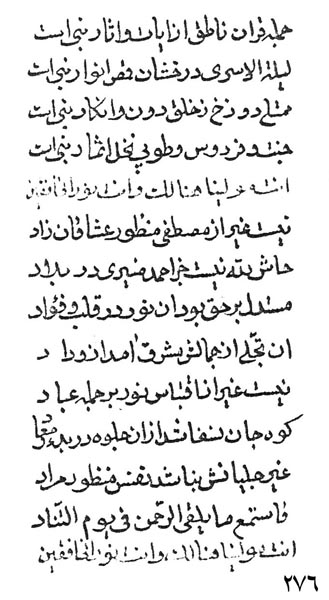 جمله قران ناطق از ایات و اثار نبی است
لیلة الاسری درخشان قمر انوار نبی است
ممتلع دوزخ ز خلق دون و انکار نبی است
جنت و فردوس و طوبی نخل اثمار نبی است
انت مولینا هنالك وانت نور الخافقین
نیست غیر از مصطفی منظور عشاقان زاد
حاش لله نیست جز احمد منیری در بلاد
مستدل بر حق بود ان نور در قلب و فؤاد
ان تجلی از جمالش بشرق امد از وداد
نیست غیر از اقتباس نور بر جمله عباد
کوه جان نسفا شد از ان جلوه در بدء معاد
غیر جلیانش بناشد نفس منظور مراد
فاستمع ما یلقی الرحمن فی یوم التناد
انت مولینا هنالك وانت نور الخافقین
٢٧٦